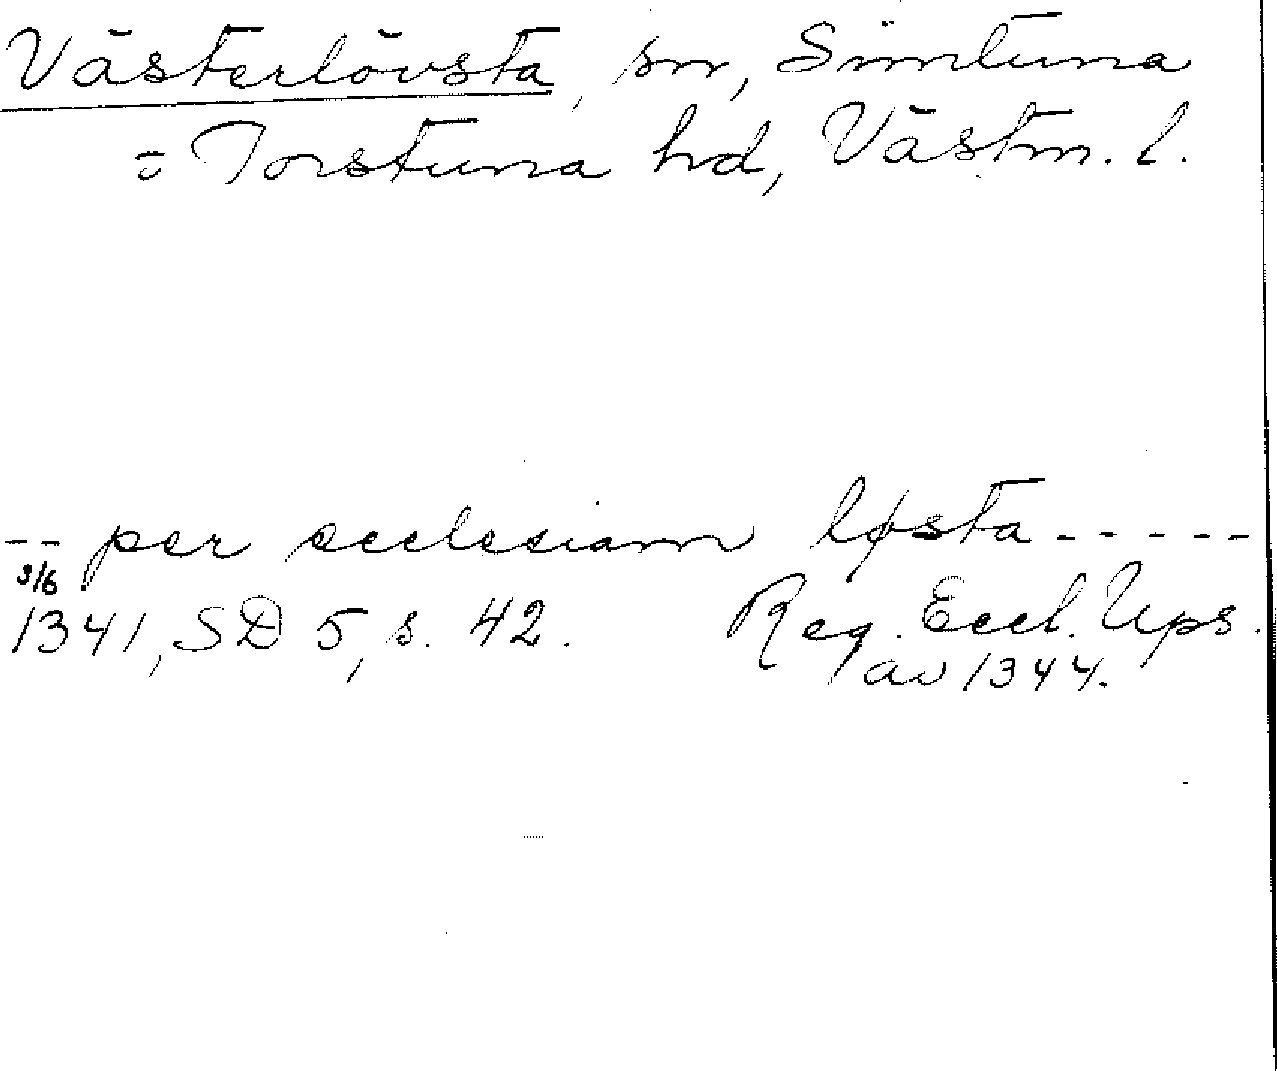 Västerlövsta, sn, Simtuna
= Torstuna hd, Västm. l.
-- per ecclesiam løsta -----
3/6
1341, SD 5, s. 42. Reg. Eccl. Ups.
av 1344.